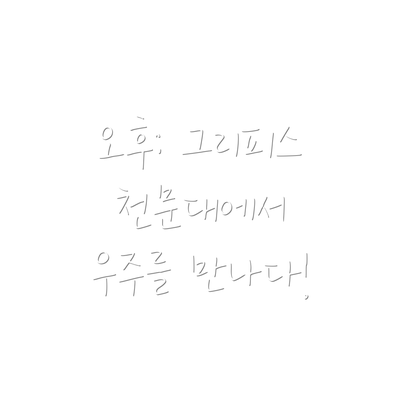 오후: 그리피스
천문대에서
우주를 만나다!